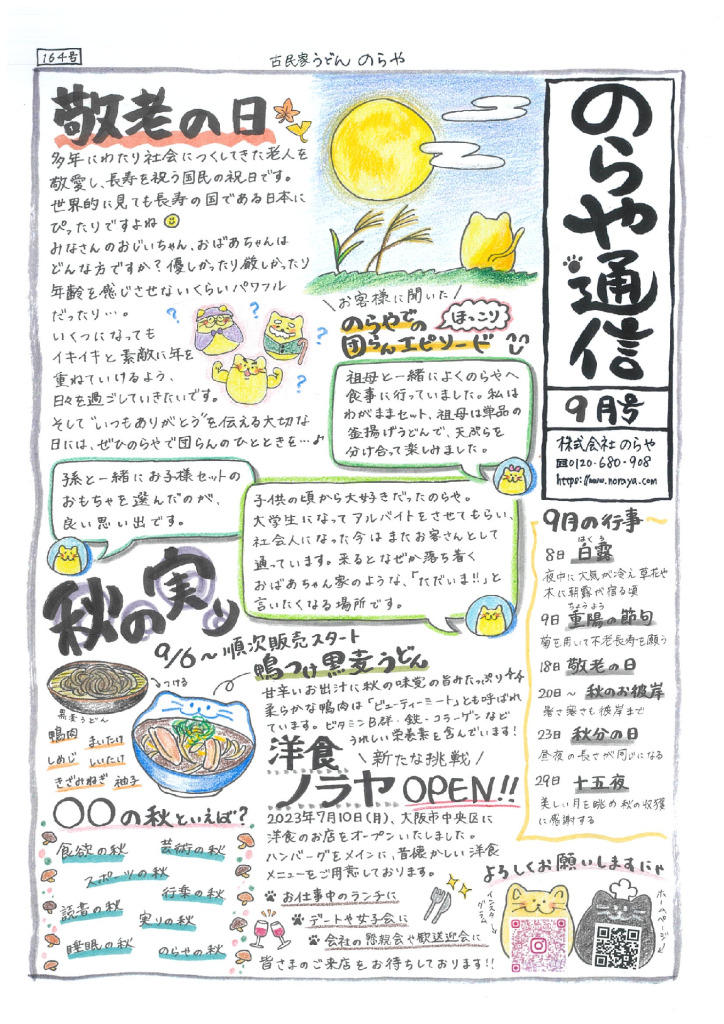 164号
古民家うどん のらや
のらや通信
9月号
株式会社 のらや
0120-680-908
https://www.noraya.com
敬老の日
多年にわたり社会につくしてきた老人を
敬愛し、長寿を祝う国民の祝日です。
世界的に見ても長寿の国である日本に
ぴったりですよね
みなさんのおじいちゃん、おばあちゃんは
どんな方ですか？優しかったり厳しかったり
年齢を感じさせないくらいパワフル
だったり…。
いくつになっても
イキイキと素敵に年を
重ねていけるよう、
日々を過ごしていきたいです。
そして"いつもありがとう"を伝える大切な
日には、ぜひのらやで団らんのひとときを…♪
? ? ? ?
お客様に聞いた
のらやでの
ほっこり
団らんエピソード
祖母と一緒によくのらやへ
食事に行っていました。私は
わがままセット、祖母は単品の
釜揚げうどんで、天ぷらを
分け合って楽しみました。
孫と一緒にお子様セットの
おもちゃを選んだのが、
良い思い出です。
子供の頃から大好きだったのらや。
大学生になってアルバイトをさせてもらい、
社会人になった今はまたお客さんとして
通っています。来るとなぜか落ち着く
おばあちゃん家のような、「ただいま!!」と
言いたくなる場所です。
秋の実り
9/6～順次販売スタート
鴨つけ黒麦うどん
つける
黒麦うどん
鴨肉 まいたけ
しめじ しいたけ
きざみねぎ 柚子
甘辛いお出汁に秋の味覚の旨みたっぷり
柔らかな鴨肉は「ビューティーミート」とも呼ばれ
ています。ビタミンB群・鉄・コラーゲンなど
うれしい栄養素を含んでいます！
〇〇の秋といえば？
食欲の秋 芸術の秋
スポーツの秋
行楽の秋
読書の秋
実りの秋
睡眠の秋 のらやの秋
新たな挑戦
洋食
ノラヤ OPEN!!
2023年7月10日(月)、大阪市中央区に
洋食のお店をオープンいたしました。
ハンバーグをメインに、昔懐かしい洋食
メニューをご用意しております。
お仕事中のランチに
デートや女子会に
会社の懇親会や歓送迎会に
皆さまのご来店をお待ちしております!!
9月の行事
8日 白露
はくろ
夜中に大気が冷え草花や
木に朝露が宿る頃
ちょうよう
9日 重陽の節句
菊を用いて不老長寿を願う
18日 敬老の日
20日～ 秋のお彼岸
暑さ寒さも彼岸まで
23日 秋分の日
昼夜の長さが同じになる
29日 十五夜
美しい月を眺め秋の収穫
に感謝する
よろしくお願いしますにゃ
インスタグラム
ホームページ